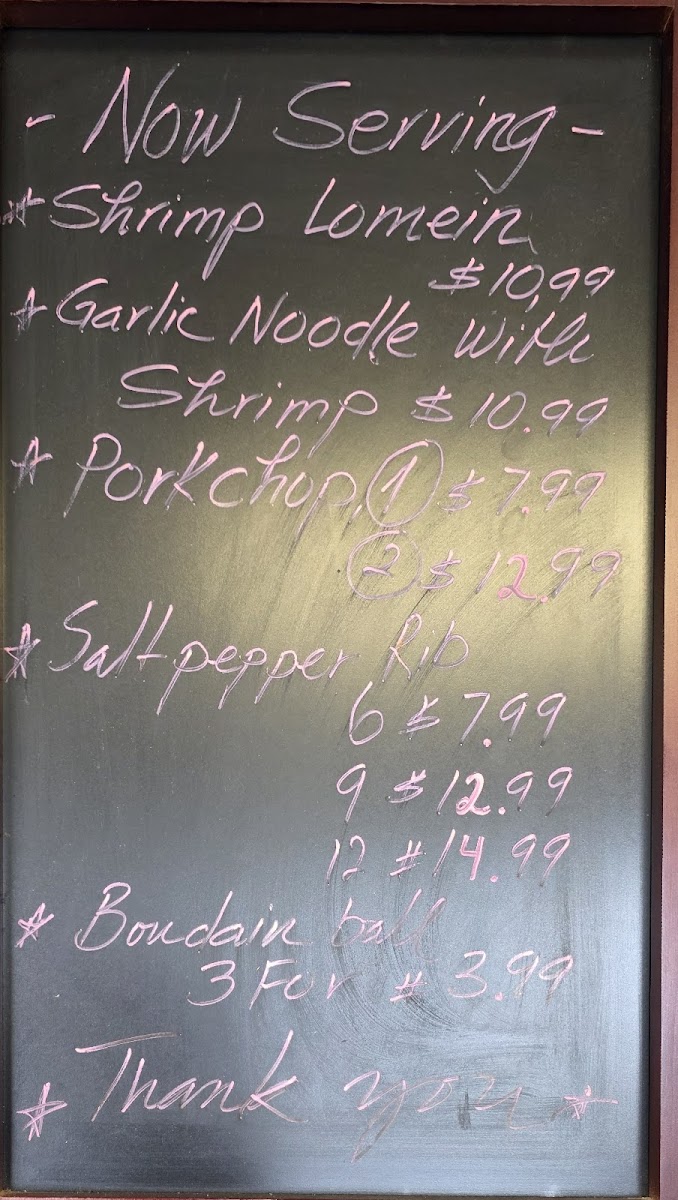 - Now Serving -
* Shrimp Lomein
$10,99
* Garlic Noodle With
Shrimp $10.99
* Porkchop, ① $7.99
② $12.99
* Salt-pepper Rib
6 $7.99
9 $12.99
12 #14.99
* Boudain ball
3 For # 3.99
* Thank you *